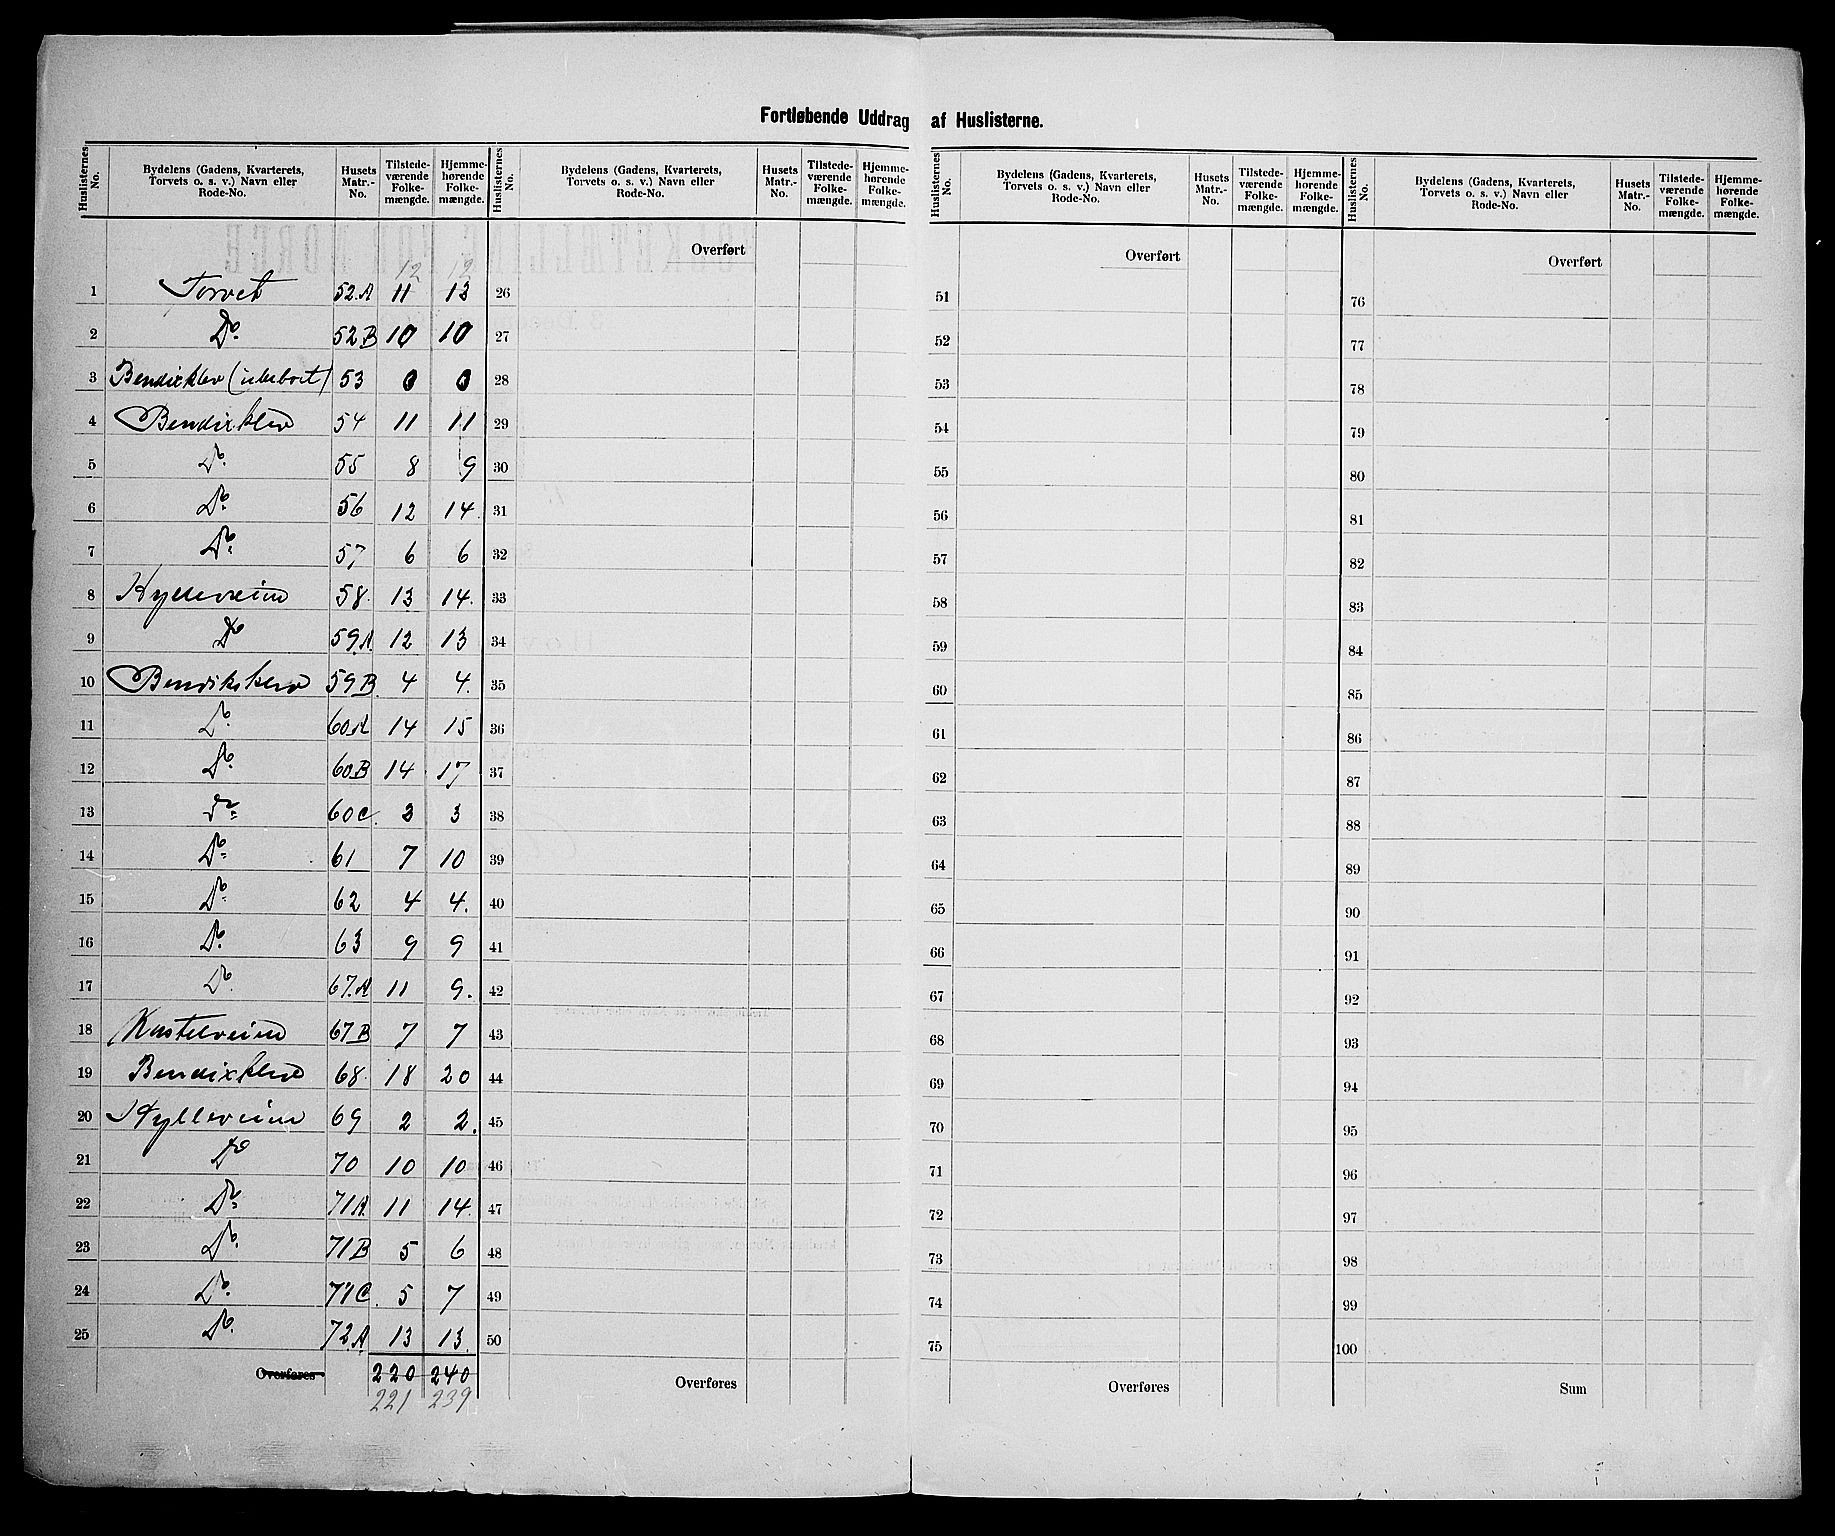 Fortløbende Uddrag af Huslisterne.
Huslisternes No. | Bydelens (Gadens, Kvarterets, Torvets o. s. v.) Navn eller Rode-No. | Husets Matr.-No. | Tilstede-værende Folke-mængde. | Hjemme-hørende Folke-mængde.
Huslisternes No. | Bydelens (Gadens, Kvarterets, Torvets o. s. v.) Navn eller Rode-No. | Husets Matr.-No. | Tilstede-værende Folke-mængde. | Hjemme-hørende Folke-mængde.
Huslisternes No. | Bydelens (Gadens, Kvarterets, Torvets o. s. v.) Navn eller Rode-No. | Husets Matr.-No. | Tilstede-værende Folke-mængde. | Hjemme-hørende Folke-mængde.
Huslisternes No. | Bydelens (Gadens, Kvarterets, Torvets o. s. v.) Navn eller Rode-No. | Husets Matr.-No. | Tilstede-værende Folke-mængde. | Hjemme-hørende Folke-mængde.
Overført Overført Overført
12 12
1 Torvet 52.A 11 13
2 Do. 52B 10 10
3 Bendixklev (ubeboet) 53 0 0
4 Bendixklev 54 11 11
5 Do. 55 8 9
6 Do. 56 12 14.
7 Do. 57 6 6
8 Hylleveien 58. 13 14.
9 Do 59.A 12 13
10 Bendiksklev 59B. 4 4.
11 Do. 60A 14 15
12 Do. 60B 14 17
13 Do. 60C. 2 3
14 Do. 61 7 10
15 Do. 62 4 4.
16 Do. 63 9 9
17 Do. 67.A 11 9.
18 Kastelveien 67B 7 7
19 Bendixklev 68. 18 20
20 Hylleveien 69 2 2.
21 Do 70 10 10
22 Do. 71A. 11 14.
23 Do. 71B 5 6
24 Do. 71C. 5 7
25 Do. 72A 13 13.
Overføres 220 240
221 239
26
27
28
29
30
31
32
33
34
35
36
37
38
39
40
41
42
43
44
45
46
47
48
49
50
Overføres
51
52
53
54
55
56
57
58
59
60
61
62
63
64
65
66
67
68
69
70
71
72
73
74
75
Overføres
76
77
78
79
80
81
82
83
84
85
86
87
88
89
90
91
92
93
94
95
96
97
98
99
100
Sum